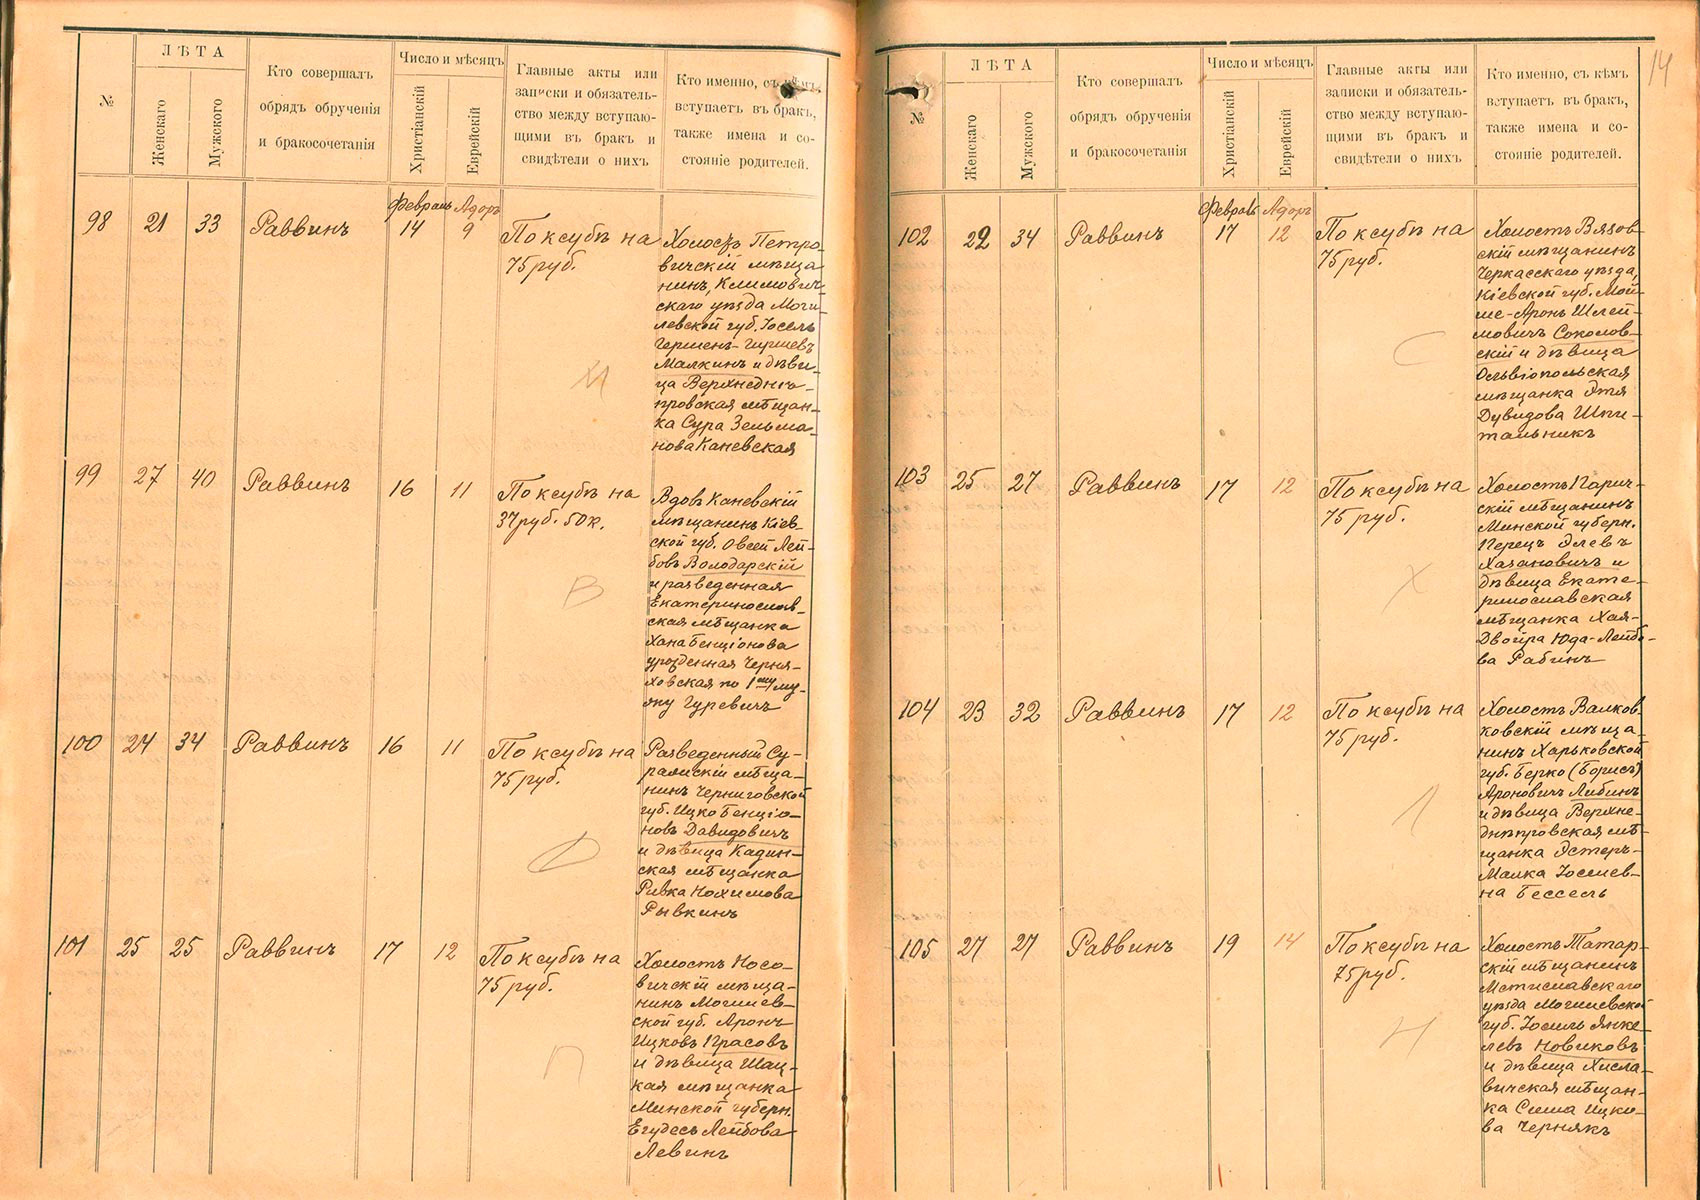 №
ЛѢТА
Женскаго
Мужского
Кто совершалъ
обрядъ обрученія
и бракосочетанія
Число и мѣсяцъ
Христіанскій
Еврейскій
Главные акты или
записки и обязатель-
ство между вступаю-
щими въ бракъ и
свидѣтели о нихъ
Кто именно, съ кѣмъ
вступаетъ въ бракъ,
также имена и со-
стояніе родителей.
98
21
33
Раввинъ
Февраль
14
Адоръ
9
По ксубѣ на
75 руб.
Холостъ Петро-
вичскій мѣща
нинъ, Климович-
скаго уѣзда Моги-
левской губ. Іосель
Гершенъ-Гиршевъ
Малкинъ и дѣви-
ца Верхнеднѣ-
провская мѣщан-
ка Сура Зельма-
нова Каневская
М
99
27
40
Раввинъ
16
11
По ксубѣ на
37 руб. 50 к.
Вдовъ Каневскій
мѣщанинъ Кіев-
ской губ. Овсей Лей-
бовъ Володарскій
и разведенная
Екатеринослав-
ская мѣщанка
Хана Бенціонова
урожденная Черня-
ховская по 1му му-
жу Гуревичъ
В
100
24
34
Раввинъ
16
11
По ксубѣ на
75 руб.
Разведенный Су-
ражскій мѣща-
нинъ Черниговской
губ. Ицко Бенціо-
новъ Давидовичъ
и дѣвица Кадин-
ская мѣщанка
Ривка Нохимова
Рывкинъ
Д
101
25
25
Раввинъ
17
12
По ксубѣ на
75 руб.
Холостъ Носо-
вичскій мѣща-
нинъ Могилев-
ской губ. Аронъ
Ицковъ Прасовъ
и дѣвица Шац-
кая мѣщанка
Минской губерн.
Егудесъ Лейбова
Левинъ
П
14
№
ЛѢТА
Женскаго
Мужского
Кто совершалъ
обрядъ обрученія
и бракосочетанія
Число и мѣсяцъ
Христіанскій
Еврейскій
Главные акты или
записки и обязатель-
ство между вступаю-
щими въ бракъ и
свидѣтели о нихъ
Кто именно, съ кѣмъ
вступаетъ въ бракъ,
также имена и со-
стояніе родителей.
102
22
34
Раввинъ
Февраль
17
Адоръ
12
По ксубѣ на
75 руб.
Холостъ Вязов-
скій мѣщанинъ
Черкасскаго уѣзда,
Кіевской губ. Мой-
ше-Аронъ Шлей-
мовичъ Соколов-
скій и дѣвица
Ольвіопольская
мѣщанка Этя
Дувидова Шпи-
тальникъ
С
103
25
27
Раввинъ
17
12
По ксубѣ на
75 руб.
Холостъ Парич-
скій мѣщанинъ
Минской губерн.
Перецъ Элевъ
Хазановичъ и
дѣвица Екате-
ринославская
мѣщанка Хая-
Двойра Юда-Лейбо-
ва Рабинъ
Х
104
23
32
Раввинъ
17
12
По ксубѣ на
75 руб.
Холостъ Валков-
ковскій мѣща-
нинъ Харьковской
губ. Берко (Борисъ)
Ароновичъ Либинъ
и дѣвица Верхне-
днѣпровская мѣ-
щанка Эстеръ-
Малка Іосиев-
на Бессель
Л
105
27
27
Раввинъ
19
14
По ксубѣ на
75 руб.
Холостъ Татар-
скій мѣщанинъ
Мстиславскаго
уѣзда Могилевской
губ. Іосиль Янке-
левъ Новиковъ
и дѣвица Хисла-
вичская мѣщан-
ка Сима Ицко-
ва Чернякъ
Н